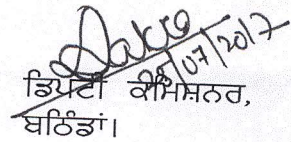 07/2017
ਡਿਪਟੀ ਕਮਿਸ਼ਨਰ,
ਬਠਿੰਡਾਂ।